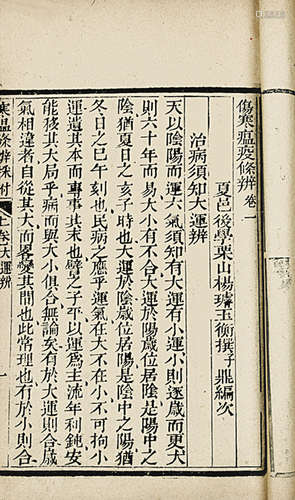 傷寒瘟疫條辨 卷一
夏邑後學栗山楊璿玉衡撰 子鼎編次
治病須知大運辨
天以陰陽而運六氣須知有大運有小運小則逐歲而更大
則六十年而易大小有不合大運於陽歲位居陰是陽中之
陰猶夏日之亥子時也大運於陰歲位居陽是陰中之陽猶
冬日之巳午刻也民病之應乎運氣在大不在小不可拘小
運遺其本而專事其末也譬之子平以運為主流年利鈍安
能移其大局乎病而與大小俱合無論矣有於大運則合歲
氣相違者自從其大而畧變其間也此常理也有於小則合
寒溫條辨採付
卷一 大運辨
一